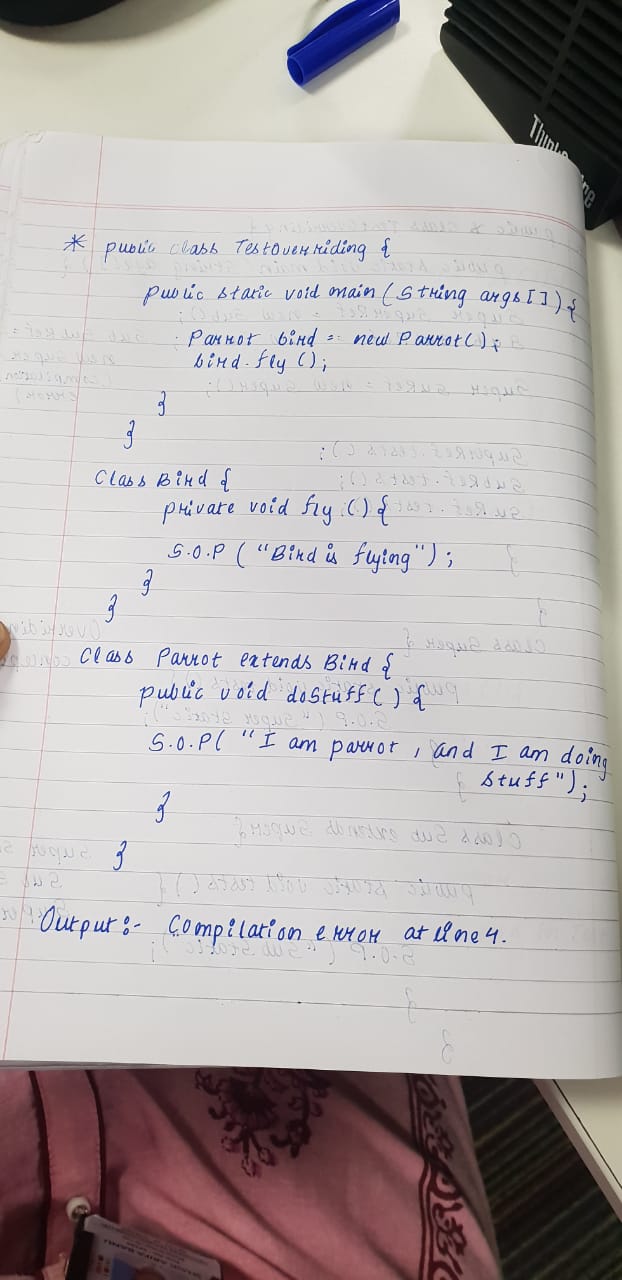 * public class TestOverriding {
public static void main (String args[]) {
Parrot bird = new Parrot();
bird.fly();
}
}
Class Bird {
private void fly () {
S.O.P ("Bird is flying");
}
}
Class Parrot extends Bird {
public void doStuff() {
S.O.P( "I am parrot, and I am doing
stuff");
}
}
Output:- Compilation error at line 4.